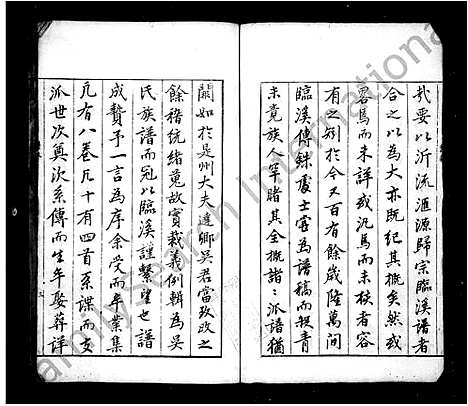 哉要以沂流滙源歸宗臨溪譜者
合之以為大亦既紀其概矣然或
畧焉而未詳或汎焉而未核者容
有之矧於今又百有餘歲隆萬間
臨溪傳錄處士嘗為譜稿而殺青
未竟族人罕睹其全概諸〻派譜猶
闕如於是州大夫達卿吳君富玫改之
餘稽統緒覓故實裁義例輯為吳
氏族譜而冠以臨溪謹繫望也譜
成贄予一言為序余受而卒業集
凡有八卷凡十有四首系譜而支
派世次奠次系傳而生年娶葬詳
Family Search International